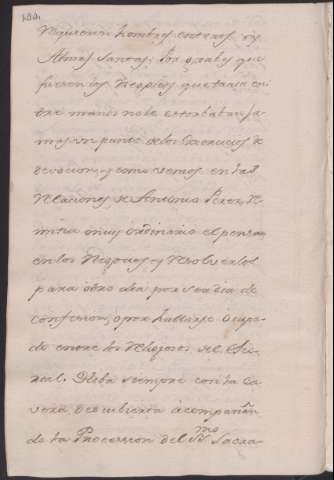 requieren hombres enteros, y
Almas Santas. Por graves que
fuesen los Negocios que traia en-
tre manos no le estorbaban ja-
mas un punto de los Exercicios de
devocion, y como vemos en las
Relaciones de Antonio Perez, re-
mitia muy ordinario el pensar
en los Negocios y resolverlos
para otro dia por ser dia de
confesion, o por hallarse ocupa-
do entre los Religiosos del Esco-
real. Iba siempre con la ca-
veza descubierta acompañan-
do de la Procession del SS.mo Sacra-